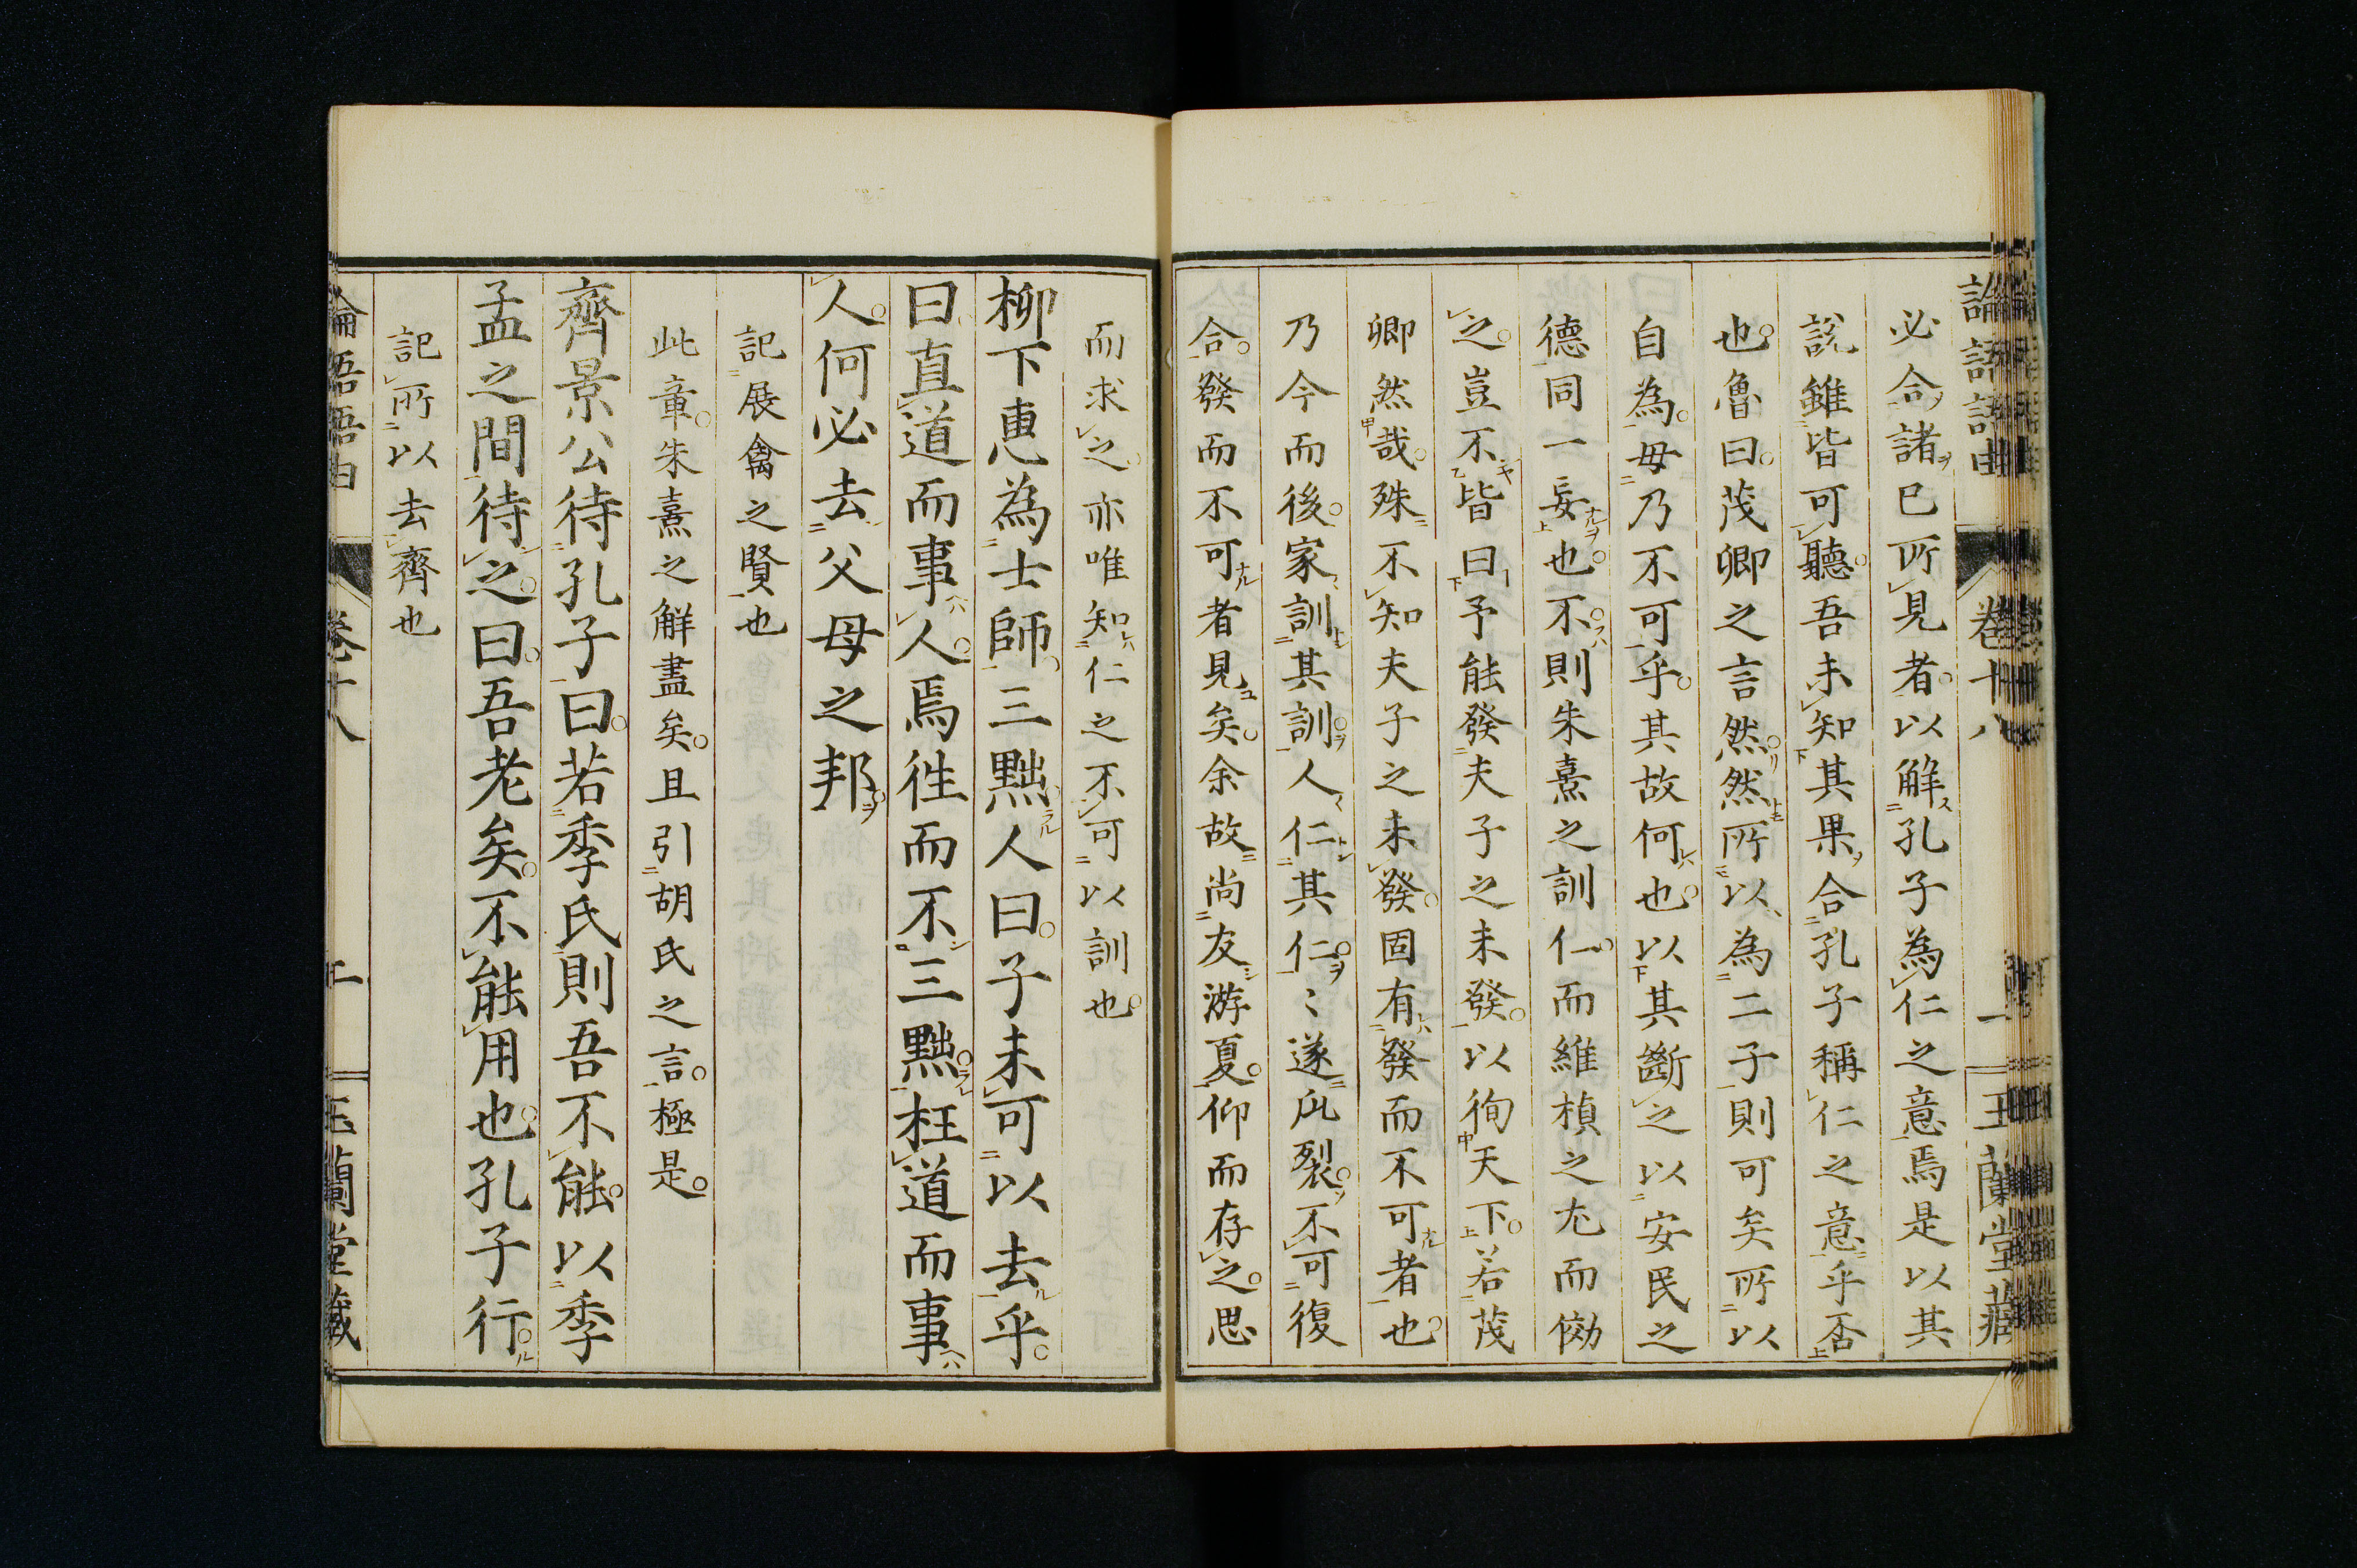 論語語由 卷十八 一 玉蘭堂藏
必合諸已所見者以解孔子為仁之意焉是以其
說雖皆可聽吾未知其果合孔子稱仁之意乎否
也魯曰茂卿之言然然所以為二子則可矣所以
自為毋乃不可乎其故何也以其斷之以安民之
德同一妄也不則朱熹之訓仁而維楨之尤而傚
之豈不皆曰予能發夫子之未發以徇天下若茂
卿然哉殊不知夫子之未發固有發而不可者也
乃今而後家訓其訓人仁其仁〻遂瓜裂不可復
合發而不可者見矣余故尚友游夏仰而存之思
而求之亦唯知仁之不可以訓也
柳下惠為士師三黜人曰子未可以去乎
曰直道而事人焉徃而不三黜枉道而事
人何必去父母之邦
記展禽之賢也
此章朱熹之解盡矣且引胡氏之言極是
齊景公待孔子曰若季氏則吾不能以季
孟之間待之曰吾老矣不能用也孔子行
記所以去齊也
論語語由 卷十八 二 玉蘭堂藏